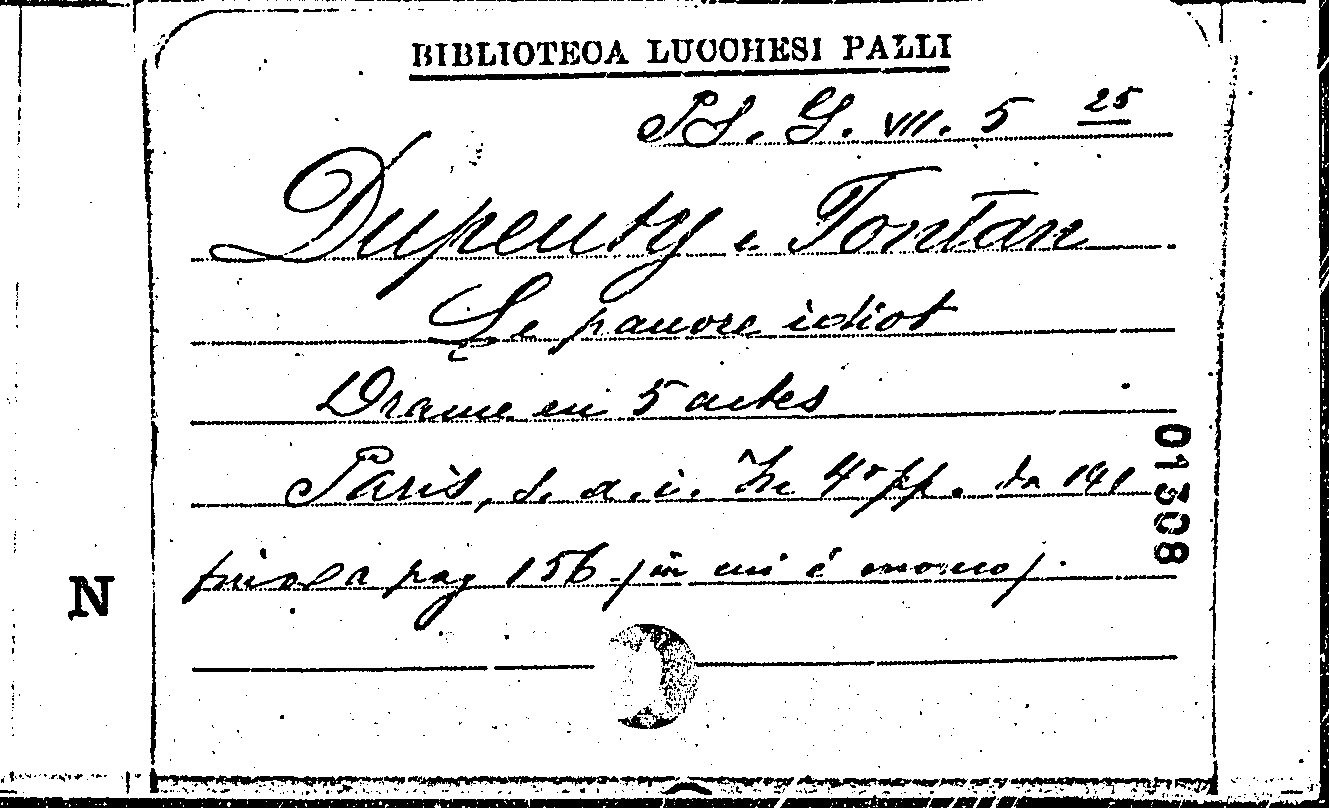 BIBLIOTECA LUCCHESI PALLI
PS. G. VII. 5 25
Dupeuty e Fontan
Le pauvre idiot
Drame en 5 actes
Paris, s. a. i. In 4° pp. da 141
fino a pag 156 (in cui è monco).
01308
N